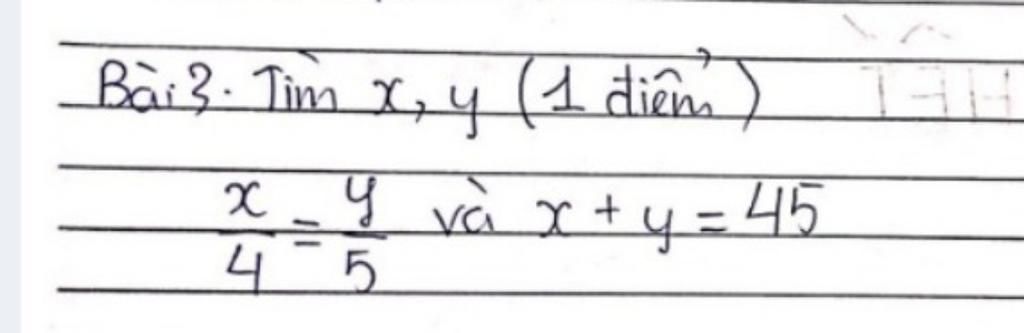 Bài 3. Tìm x, y (1 điểm)
x/4 = y/5 và x + y = 45